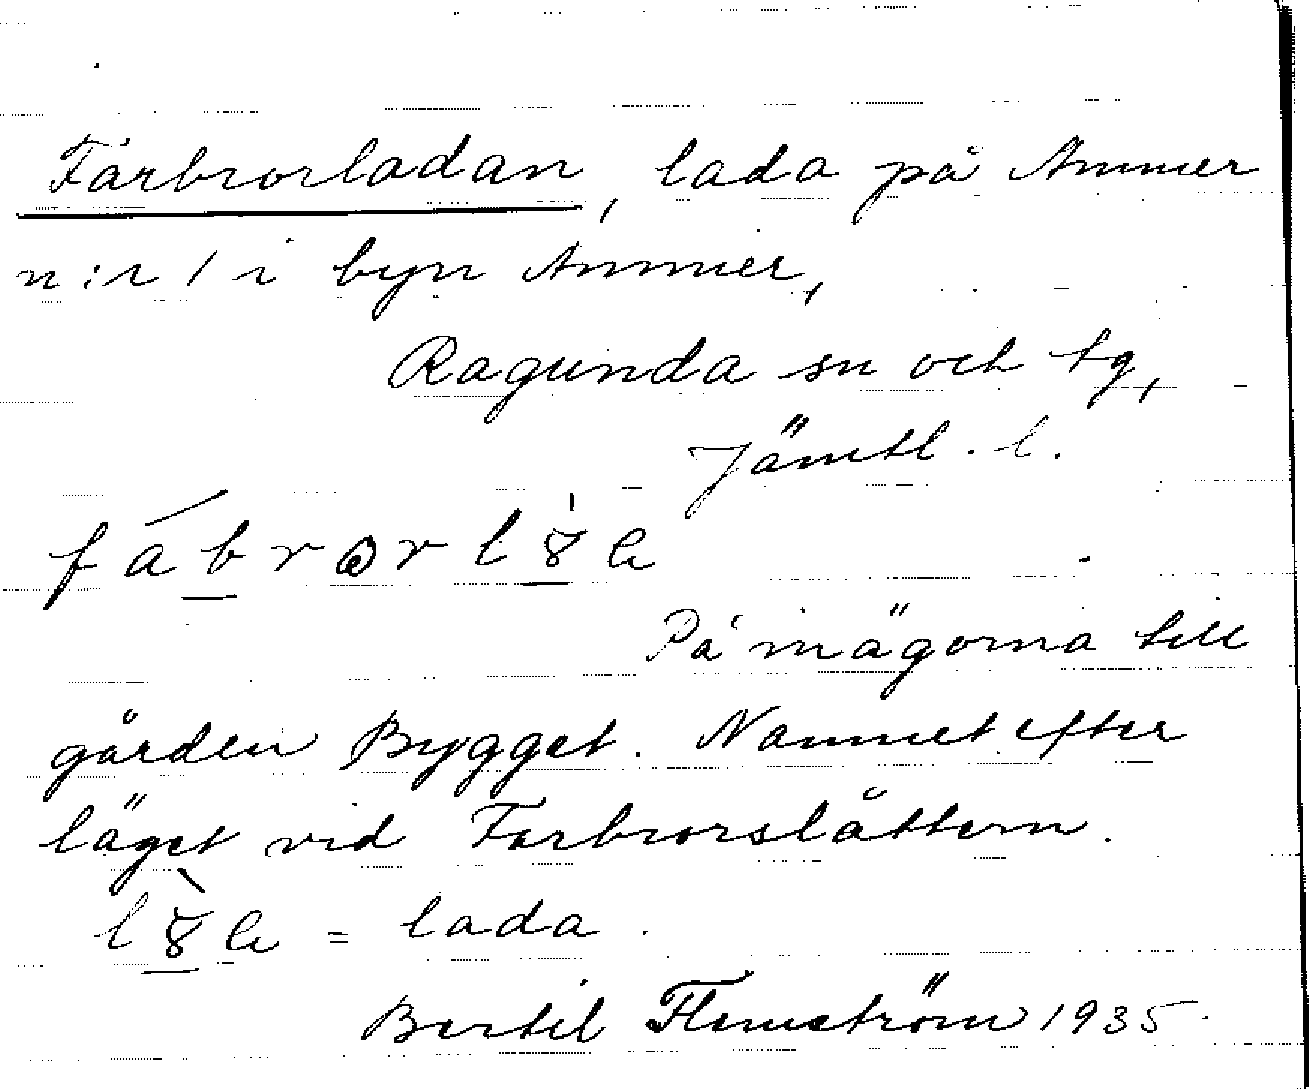 Farbrorladan, lada på Ammer
n:r 1 i byn Ammer,
Ragunda sn och tg,
Jämtl. l.
På inägorna till
gården Bygget. Namnet efter
läget vid Farbrorslåttern.
= lada.
Bertil Flemström 1935